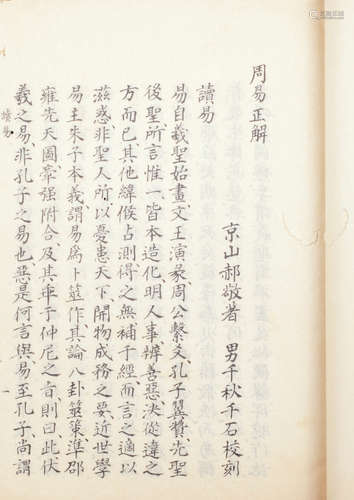 周易正解
京山郝敬著 男千秋千石校刻
讀易
易自羲聖始畫文王演彖周公繫爻孔子翼贊先聖
後聖所言惟一皆本造化明人事辨善惡決從違之
方而已其他緯候占測得之無補于經而言之適以
滋惑非聖人所以憂患天下開物成務之要近世學
易主朱子本義謂易爲卜筮作其論八卦筮策準邵
雍先天圖牽強附合及其乖子仲尼之旨則曰此伏
羲之易非孔子之易也惡是何言與易至孔子尚謂
讀易
一